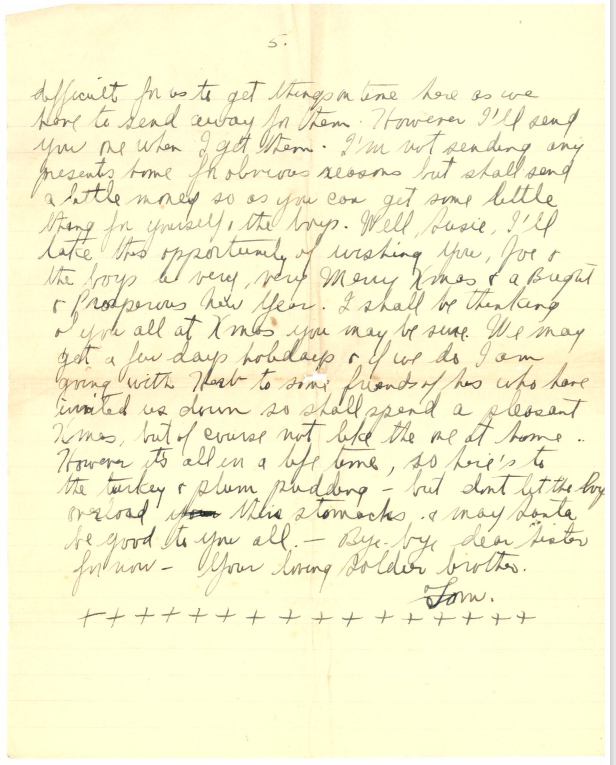 5.
difficult for us to get things on time here as we
have to send away for them. However I'll send
you one when I get them. I'm not sending any
presents home for obvious reasons but shall send
a little money so as you can get some little
thing for yourself & the boys. Well, Susie, I'll
take this opportunity of wishing you, Joe &
the boys a very, very Merry Xmas & a Bright
& Prosperous New Year. I shall be thinking
of you all at Xmas you may be sure. We may
get a few days holidays & if we do I am
going with Herb to some friends of his who have
invited us down so shall spend a pleasant
Xmas, but of course not like the one at home..
However it's all in a life time, so here's to
the turkey & plum pudding - but don't let the boys
overload their stomachs. & may Santa
be good to you all. - Bye-bye dear sister
for now - Your loving soldier brother.
Tom.
+ + + + + + + + + + + + + + + +